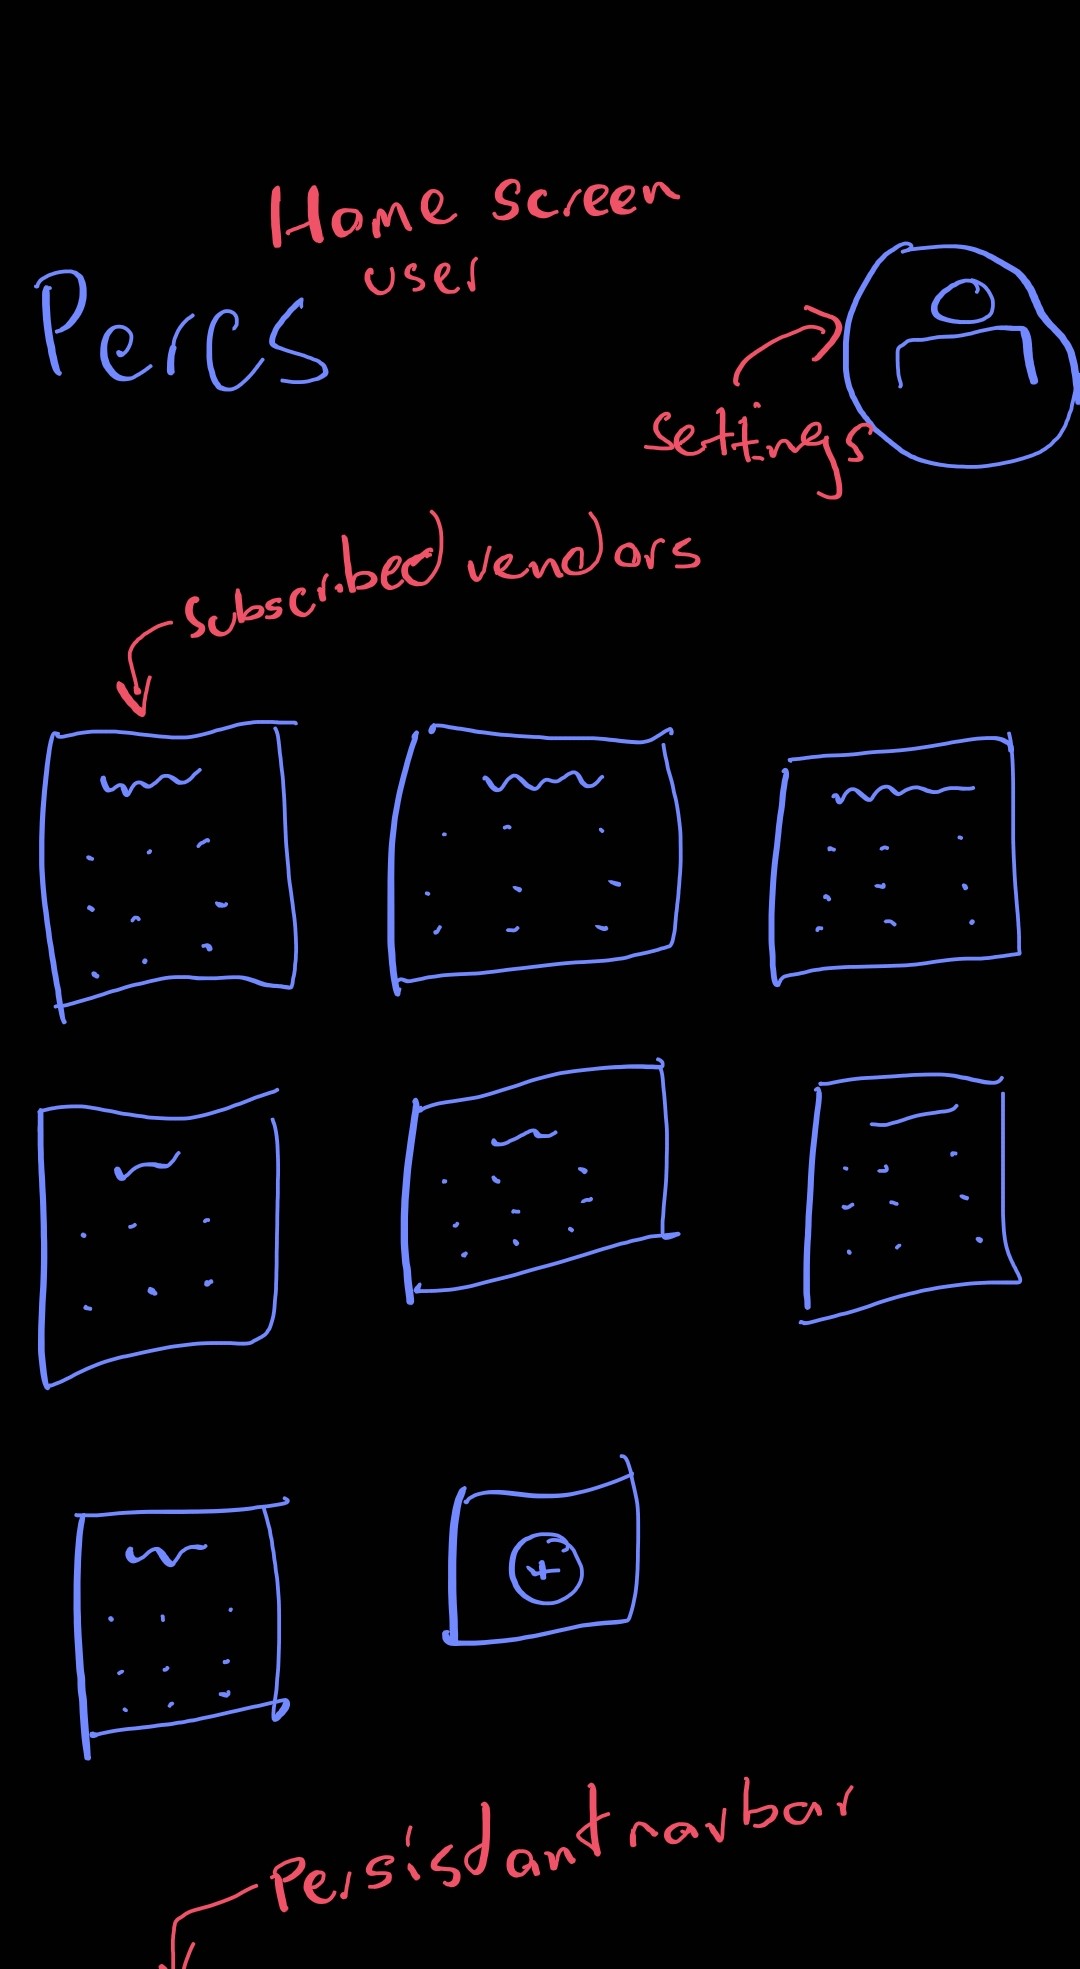 Home screen
user
Percs
settings
subscribed vendors
Persistant navbar